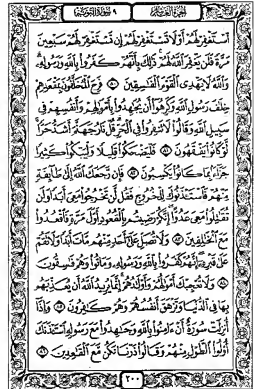 الجزء العاشر ٩ سورة التوبة
ٱسۡتَغۡفِرۡ لَهُمۡ أَوۡ لَا تَسۡتَغۡفِرۡ لَهُمۡ إِن تَسۡتَغۡفِرۡ لَهُمۡ سَبۡعِينَ
مَرَّةٗ فَلَن يَغۡفِرَ ٱللَّهُ لَهُمۡۚ ذَٰلِكَ بِأَنَّهُمۡ كَفَرُواْ بِٱللَّهِ وَرَسُولِهِۦۗ
وَٱللَّهُ لَا يَهۡدِي ٱلۡقَوۡمَ ٱلۡفَٰسِقِينَ ٨٠ فَرِحَ ٱلۡمُخَلَّفُونَ بِمَقۡعَدِهِمۡ
خِلَٰفَ رَسُولِ ٱللَّهِ وَكَرِهُوٓاْ أَن يُجَٰهِدُواْ بِأَمۡوَٰلِهِمۡ وَأَنفُسِهِمۡ فِي
سَبِيلِ ٱللَّهِ وَقَالُواْ لَا تَنفِرُواْ فِي ٱلۡحَرِّۗ قُلۡ نَارُ جَهَنَّمَ أَشَدُّ حَرّٗاۚ
لَّوۡ كَانُواْ يَفۡقَهُونَ ٨١ فَلۡيَضۡحَكُواْ قَلِيلٗا وَلۡيَبۡكُواْ كَثِيرٗا
جَزَآءَۢ بِمَا كَانُواْ يَكۡسِبُونَ ٨٢ فَإِن رَّجَعَكَ ٱللَّهُ إِلَىٰ طَآئِفَةٖ
مِّنۡهُمۡ فَٱسۡتَـٔۡذَنُوكَ لِلۡخُرُوجِ فَقُل لَّن تَخۡرُجُواْ مَعِيَ أَبَدٗا وَلَن
تُقَٰتِلُواْ مَعِيَ عَدُوًّاۖ إِنَّكُمۡ رَضِيتُم بِٱلۡقُعُودِ أَوَّلَ مَرَّةٖ فَٱقۡعُدُواْ
مَعَ ٱلۡخَٰلِفِينَ ٨٣ وَلَا تُصَلِّ عَلَىٰٓ أَحَدٖ مِّنۡهُم مَّاتَ أَبَدٗا وَلَا تَقُمۡ
عَلَىٰ قَبۡرِهِۦٓۖ إِنَّهُمۡ كَفَرُواْ بِٱللَّهِ وَرَسُولِهِۦ وَمَاتُواْ وَهُمۡ فَٰسِقُونَ
٨٤ وَلَا تُعۡجِبۡكَ أَمۡوَٰلُهُمۡ وَأَوۡلَٰدُهُمۡۚ إِنَّمَا يُرِيدُ ٱللَّهُ أَن يُعَذِّبَهُم
بِهَا فِي ٱلدُّنۡيَا وَتَزۡهَقَ أَنفُسُهُمۡ وَهُمۡ كَٰفِرُونَ ٨٥ وَإِذَآ
أُنزِلَتۡ سُورَةٌ أَنۡ ءَامِنُواْ بِٱللَّهِ وَجَٰهِدُواْ مَعَ رَسُولِهِ ٱسۡتَـٔۡذَنَكَ
أُوْلُواْ ٱلطَّوۡلِ مِنۡهُمۡ وَقَالُواْ ذَرۡنَا نَكُن مَّعَ ٱلۡقَٰعِدِينَ ٨٦
٢٠٠